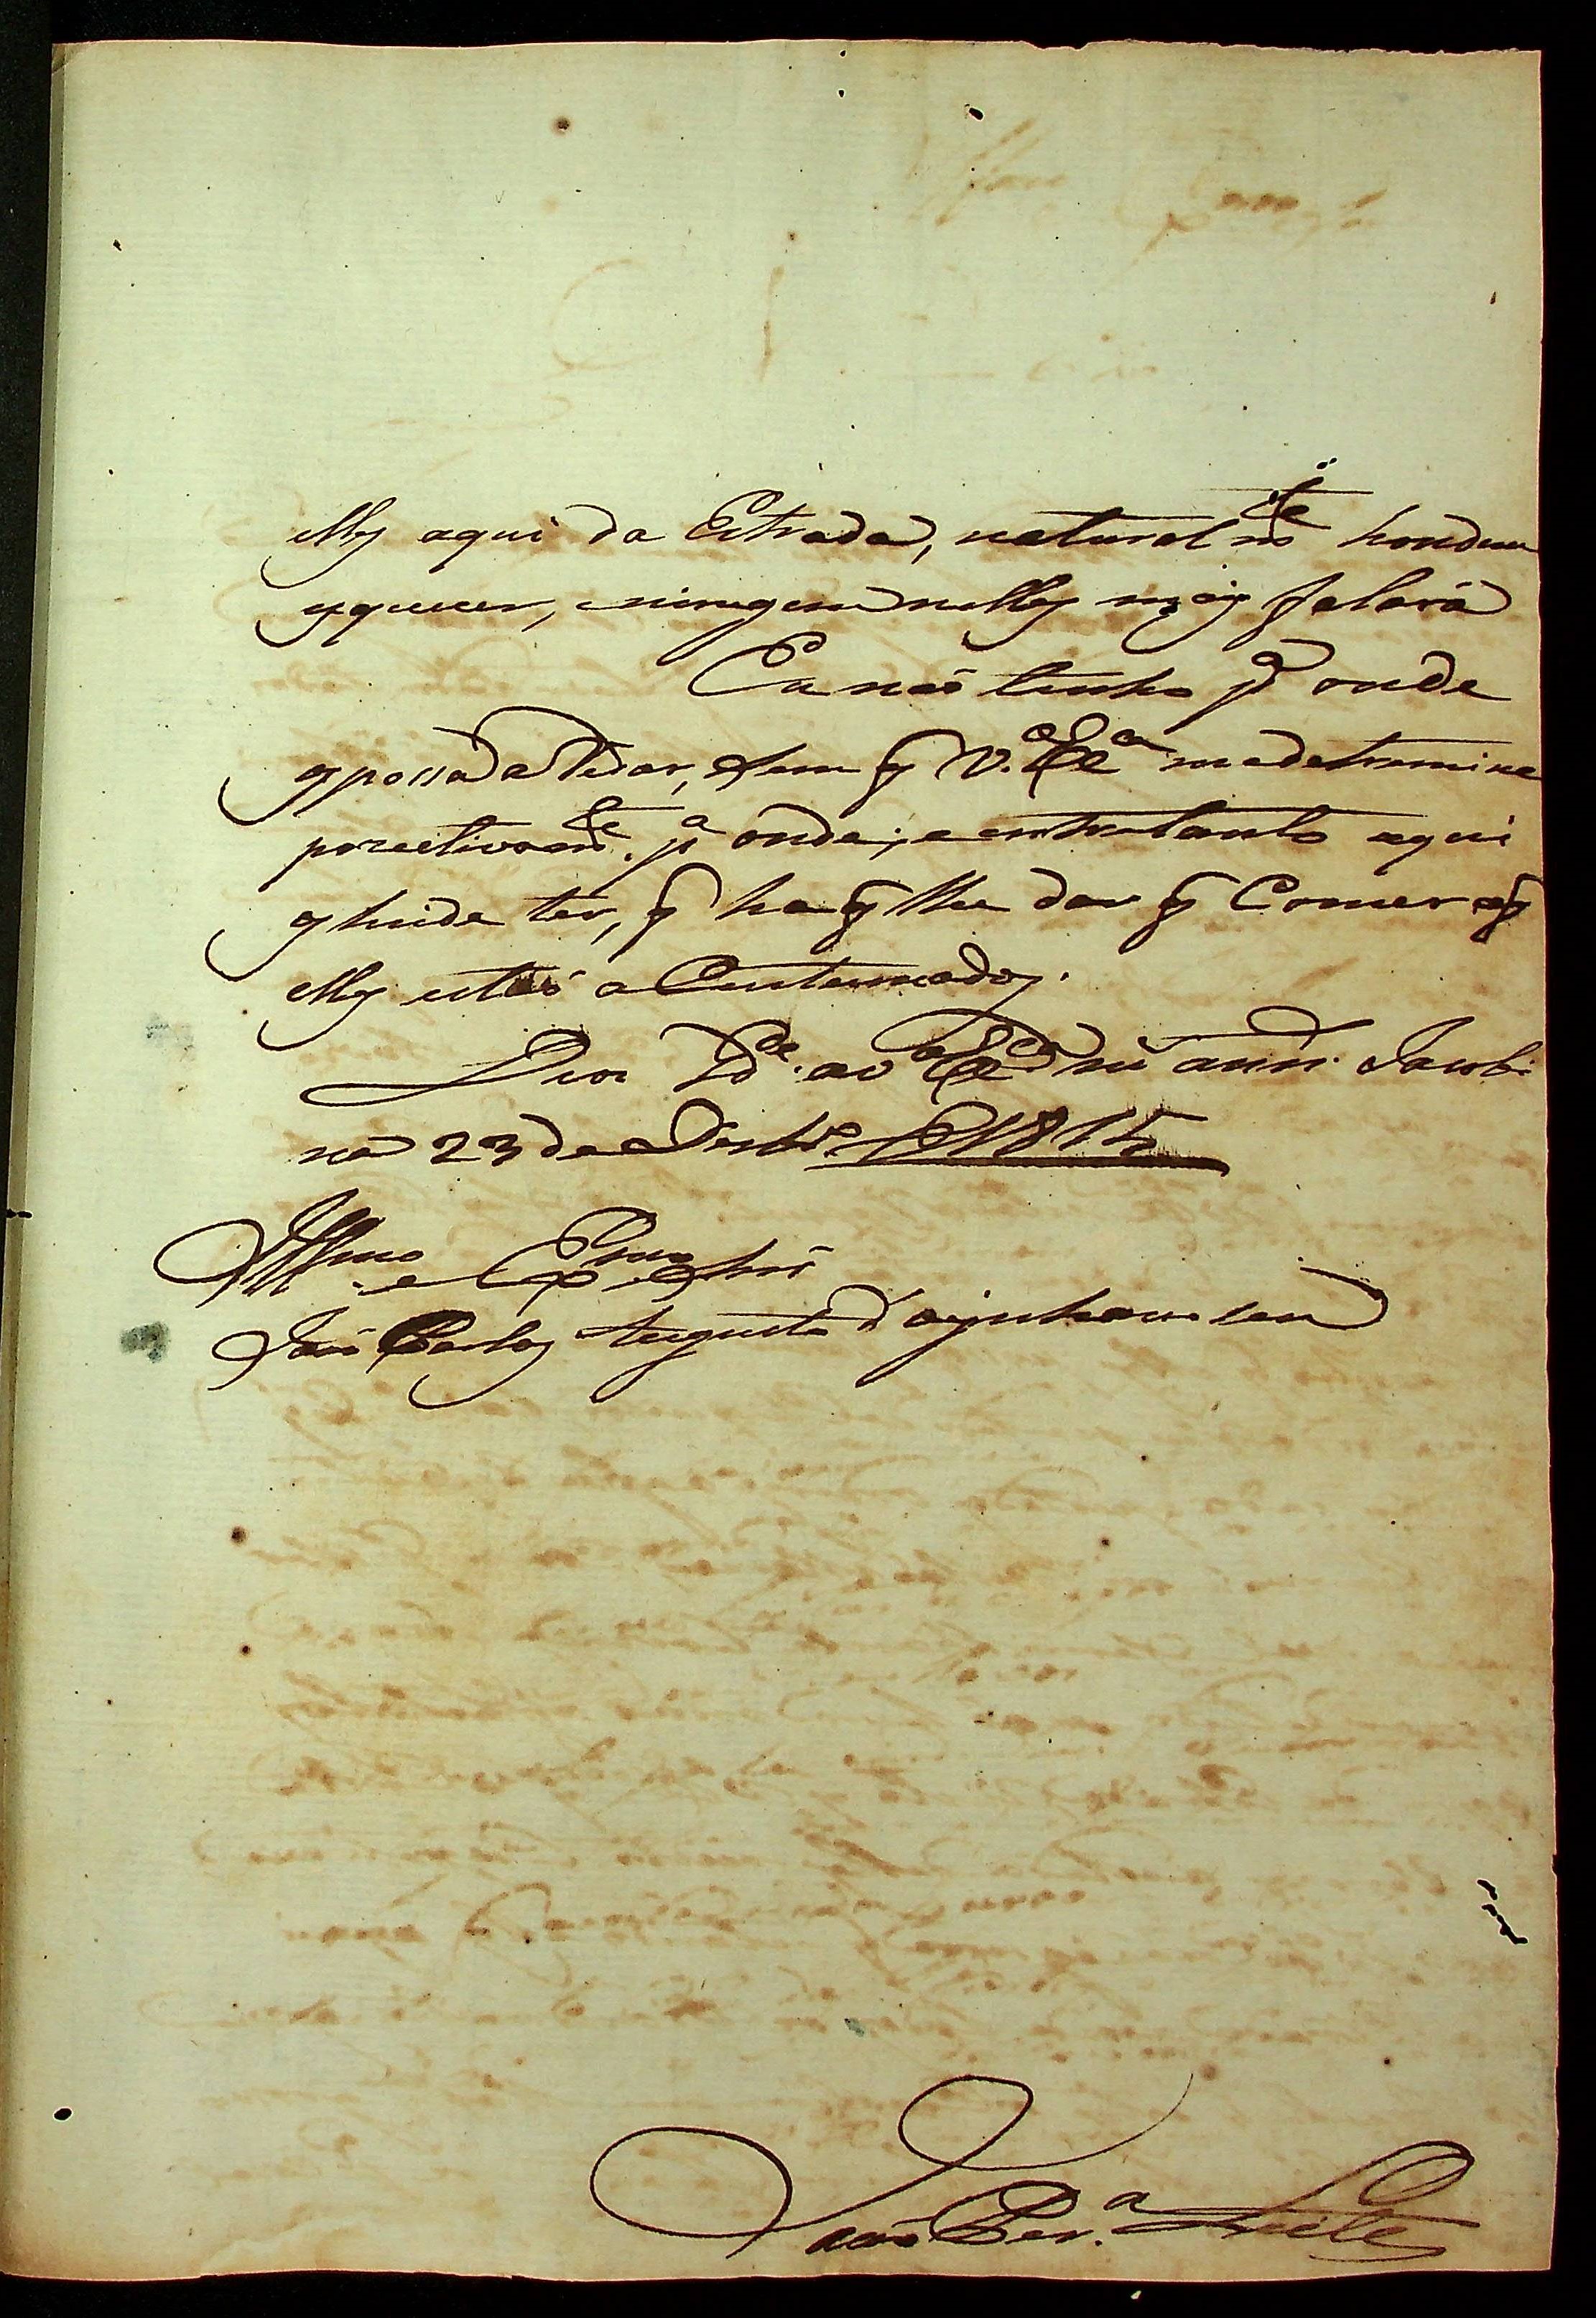 elles aqui da Estrada, natural m.te hondem
esquecer, e ninguem nelles mais falará
Eu não tenho p.a onde
os possa deRedar, sem q̃ V. Ex.ca me detremine
pozectivam.te p.a onde; e entretanto aqui
os heide ter, q̃ ha q̃ lhe dar q̃ Comer e q̃
elles estão a Custumados.
Deos G.de a V Ex.ca m.s ann.s Jacobi
na 23 de Dezbr.o de 1815
Ill.mo e Ex.mo Snr̃
João Carlos Augusto d'Oeynhausen
João Per.a Leite